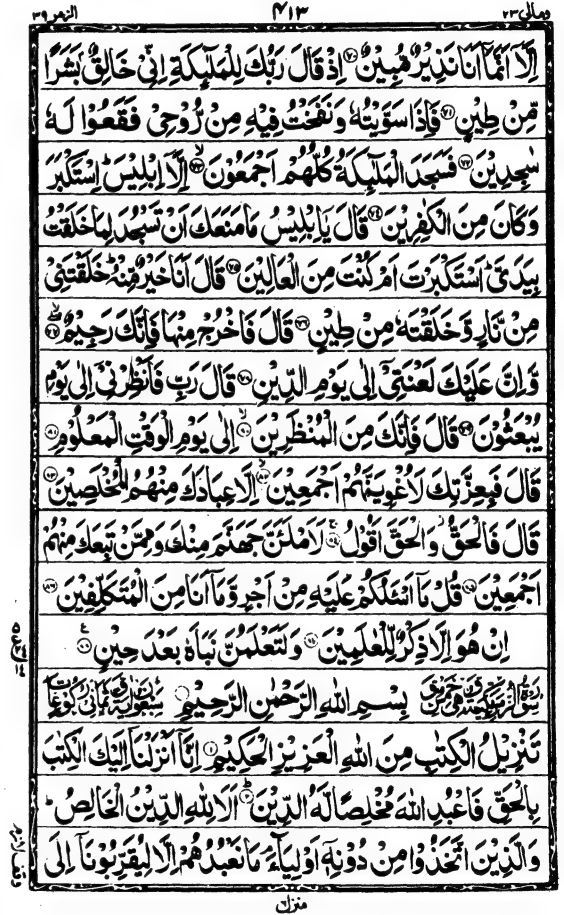 ومالی ۲۳ ۴۱۳ الزمر ۳۹
اِلَّاۤ اَنَّمَاۤ اَنَا نَذِيْرٌ مُّبِيْنٌ ۷۰ اِذْ قَالَ رَبُّكَ لِلْمَلٰٓئِكَةِ اِنِّيْ خَالِقٌۢ بَشَرًا
مِّنْ طِيْنٍ ۷۱ فَاِذَا سَوَّيْتُهٗ وَنَفَخْتُ فِيْهِ مِنْ رُّوْحِيْ فَقَعُوْا لَهٗ
سٰجِدِيْنَ ۷۲ فَسَجَدَ الْمَلٰٓئِكَةُ كُلُّهُمْ اَجْمَعُوْنَ ۷۳ اِلَّاۤ اِبْلِيْسَ ؕ اِسْتَكْبَرَ
وَكَانَ مِنَ الْكٰفِرِيْنَ ۷۴ قَالَ يَاۤاِبْلِيْسُ مَا مَنَعَكَ اَنْ تَسْجُدَ لِمَا خَلَقْتُ
بِيَدَيَّ ؕ اَسْتَكْبَرْتَ اَمْ كُنْتَ مِنَ الْعَالِيْنَ ۷۵ قَالَ اَنَا خَيْرٌ مِّنْهُ ؕ خَلَقْتَنِيْ
مِنْ نَّارٍ وَّخَلَقْتَهٗ مِنْ طِيْنٍ ۷۶ قَالَ فَاخْرُجْ مِنْهَا فَاِنَّكَ رَجِيْمٌ ۷۷
وَّاِنَّ عَلَيْكَ لَعْنَتِيْۤ اِلٰى يَوْمِ الدِّيْنِ ۷۸ قَالَ رَبِّ فَاَنْظِرْنِيْۤ اِلٰى يَوْمِ
يُبْعَثُوْنَ ۷۹ قَالَ فَاِنَّكَ مِنَ الْمُنْظَرِيْنَ ۸۰ اِلٰى يَوْمِ الْوَقْتِ الْمَعْلُوْمِ ۸۱
قَالَ فَبِعِزَّتِكَ لَاُغْوِيَنَّهُمْ اَجْمَعِيْنَ ۸۲ اِلَّا عِبَادَكَ مِنْهُمُ الْمُخْلَصِيْنَ ۸۳
قَالَ فَالْحَقُّ وَالْحَقَّ اَقُوْلُ ۸۴ لَاَمْلَئَنَّ جَهَنَّمَ مِنْكَ وَمِمَّنْ تَبِعَكَ مِنْهُمْ
اَجْمَعِيْنَ ۸۵ قُلْ مَاۤ اَسْئَلُكُمْ عَلَيْهِ مِنْ اَجْرٍ وَّمَاۤ اَنَا مِنَ الْمُتَكَلِّفِيْنَ ۸۶
اِنْ هُوَ اِلَّا ذِكْرٌ لِّلْعٰلَمِيْنَ ۸۷ وَلَتَعْلَمُنَّ نَبَاَهٗ بَعْدَ حِيْنٍ ۸۸
بِسْمِ اللّٰهِ الرَّحْمٰنِ الرَّحِيْمِ
تَنْزِيْلُ الْكِتٰبِ مِنَ اللّٰهِ الْعَزِيْزِ الْحَكِيْمِ ۱ اِنَّاۤ اَنْزَلْنَاۤ اِلَيْكَ الْكِتٰبَ
بِالْحَقِّ فَاعْبُدِ اللّٰهَ مُخْلِصًا لَّهُ الدِّيْنَ ۲ اَلَا لِلّٰهِ الدِّيْنُ الْخَالِصُ ؕ
وَالَّذِيْنَ اتَّخَذُوْا مِنْ دُوْنِهٖۤ اَوْلِيَآءَ مَا نَعْبُدُهُمْ اِلَّا لِيُقَرِّبُوْنَاۤ اِلَى
منزل